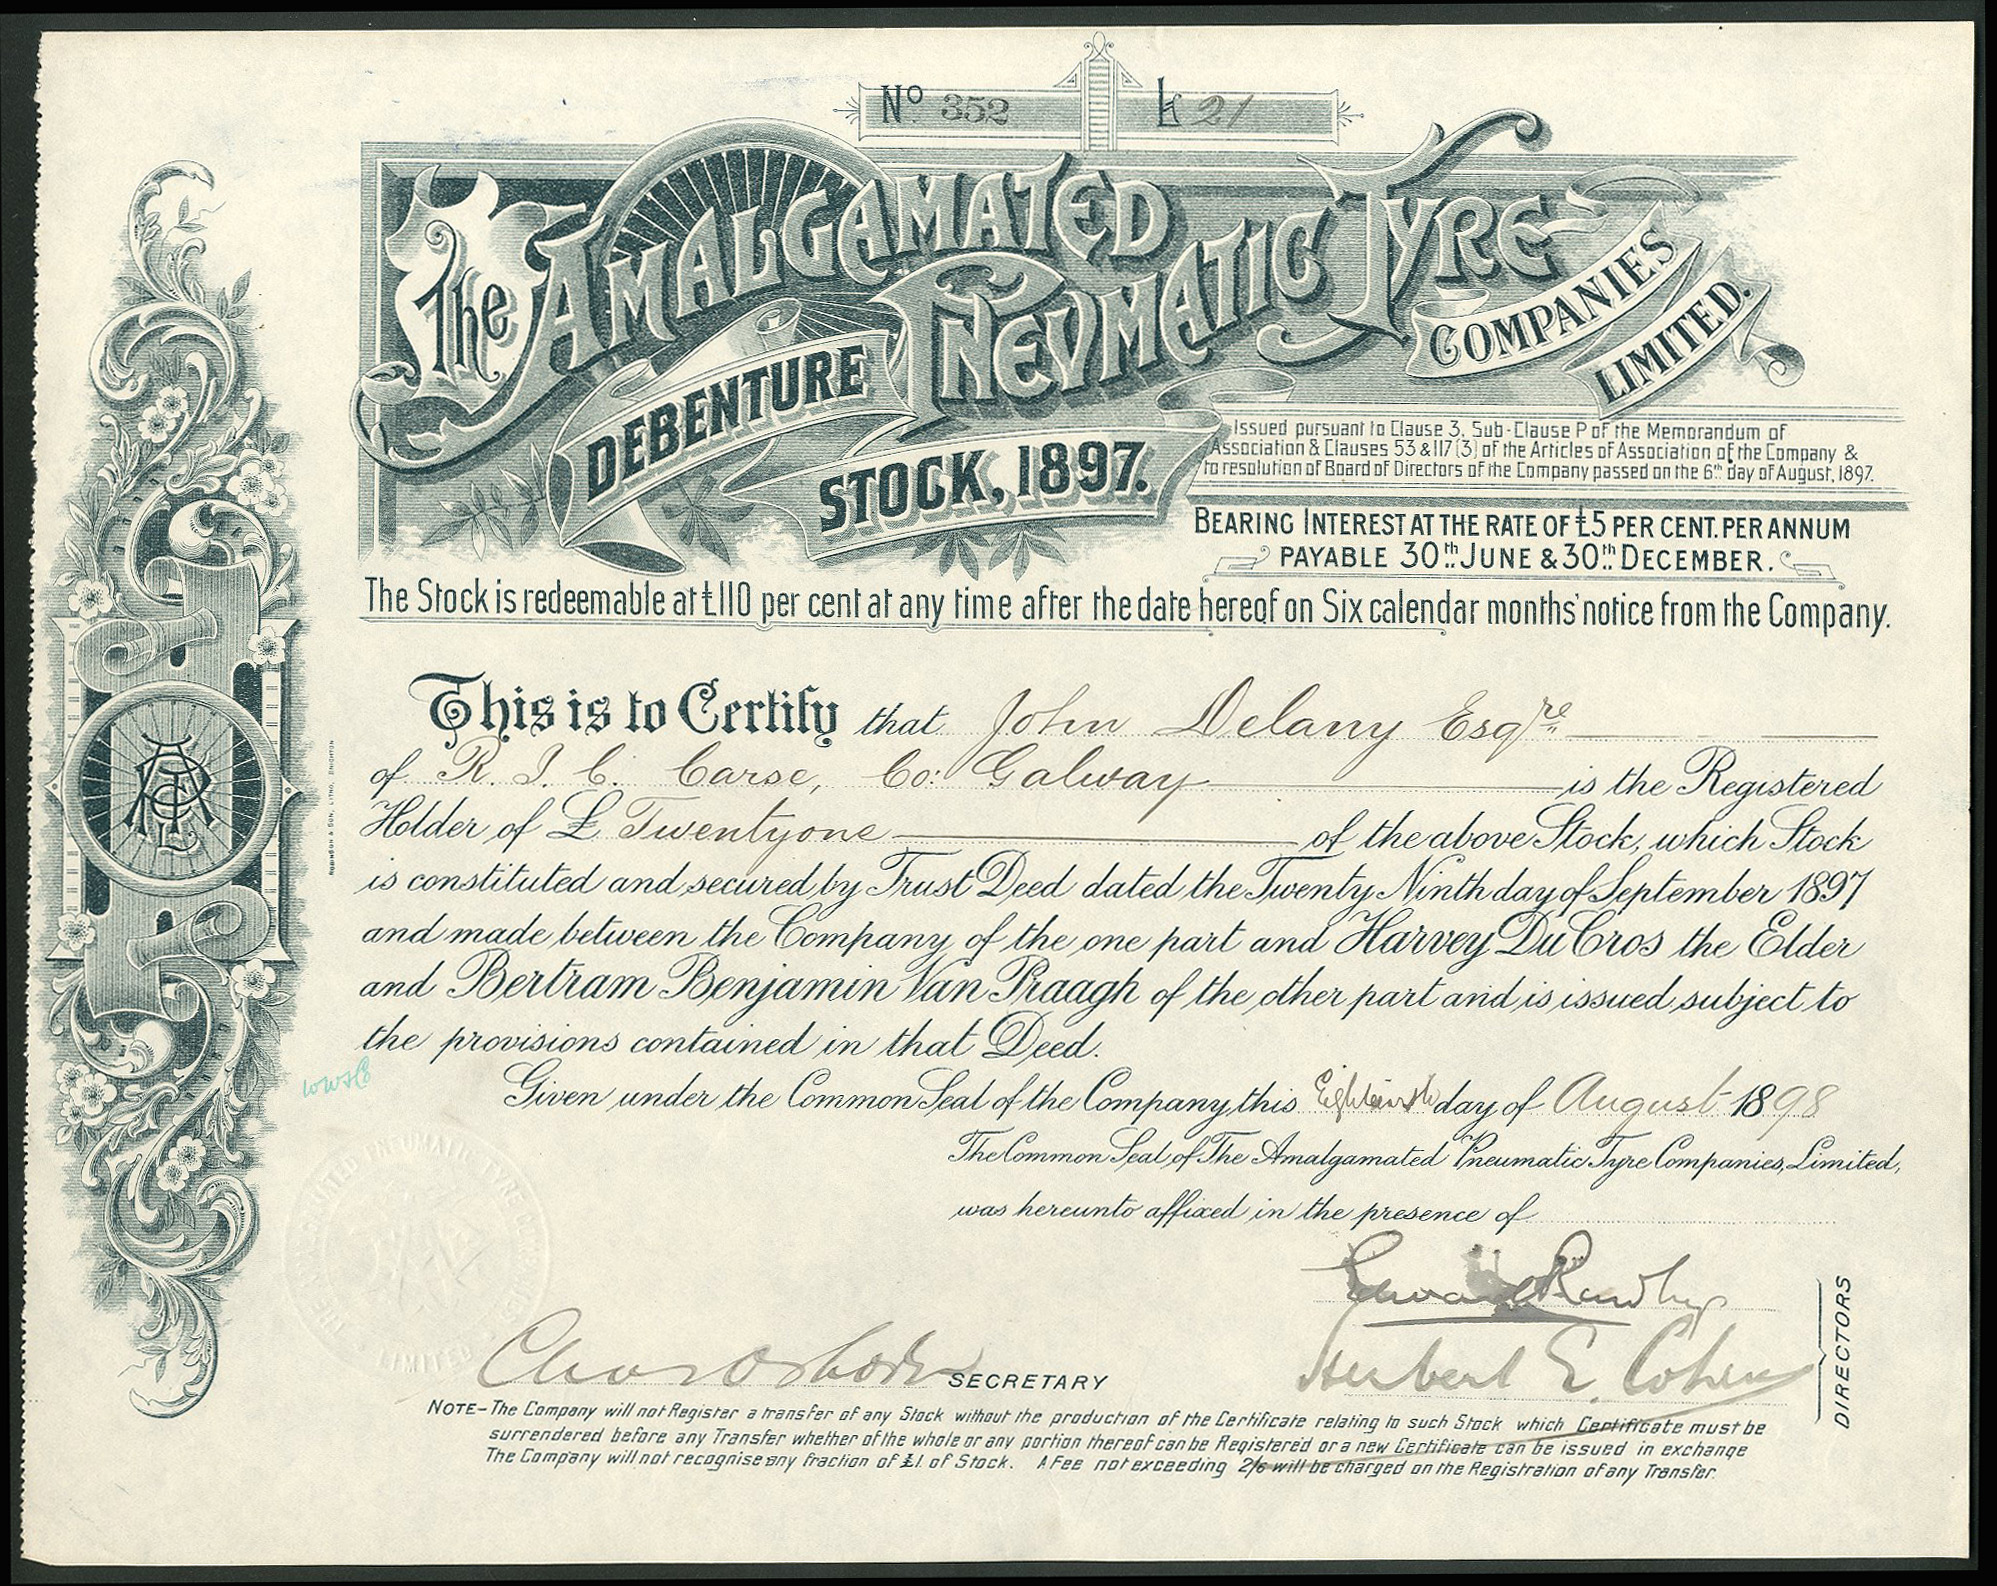 No. 352 £ 21
The Amalgamated Pneumatic Tyre Companies Limited.
DEBENTURE STOCK, 1897.
Issued pursuant to Clause 3, Sub-Clause P of the Memorandum of
Association & Clauses 53 & 117 (3) of the Articles of Association of the Company &
to resolution of Board of Directors of the Company passed on the 6th day of August, 1897.
BEARING INTEREST AT THE RATE OF £5 PER CENT. PER ANNUM
PAYABLE 30th JUNE & 30th DECEMBER.
The Stock is redeemable at £110 per cent at any time after the date hereof on Six calendar months' notice from the Company.
This is to Certify that John Delany Esqre
of R. I. C. Carse, Co: Galway is the Registered
Holder of £ Twentyone of the above Stock, which Stock
is constituted and secured by Trust Deed dated the Twenty Ninth day of September 1897
and made between the Company of the one part and Harvey Du Cros the Elder
and Bertram Benjamin Van Praagh of the other part and is issued subject to
the provisions contained in that Deed.
Given under the Common Seal of the Company, this Eighteenth day of August 1898
The Common Seal of The Amalgamated Pneumatic Tyre Companies, Limited,
was hereunto affixed in the presence of
Herbert E. Cohen
DIRECTORS
SECRETARY
NOTE - The Company will not Register a transfer of any Stock without the production of the Certificate relating to such Stock which Certificate must be
surrendered before any Transfer whether of the whole or any portion thereof can be Registered or a new Certificate can be issued in exchange
The Company will not recognise any fraction of £1. of Stock. A Fee not exceeding 2/6 will be charged on the Registration of any Transfer.
THE AMALGAMATED PNEUMATIC TYRE COMPANIES LIMITED